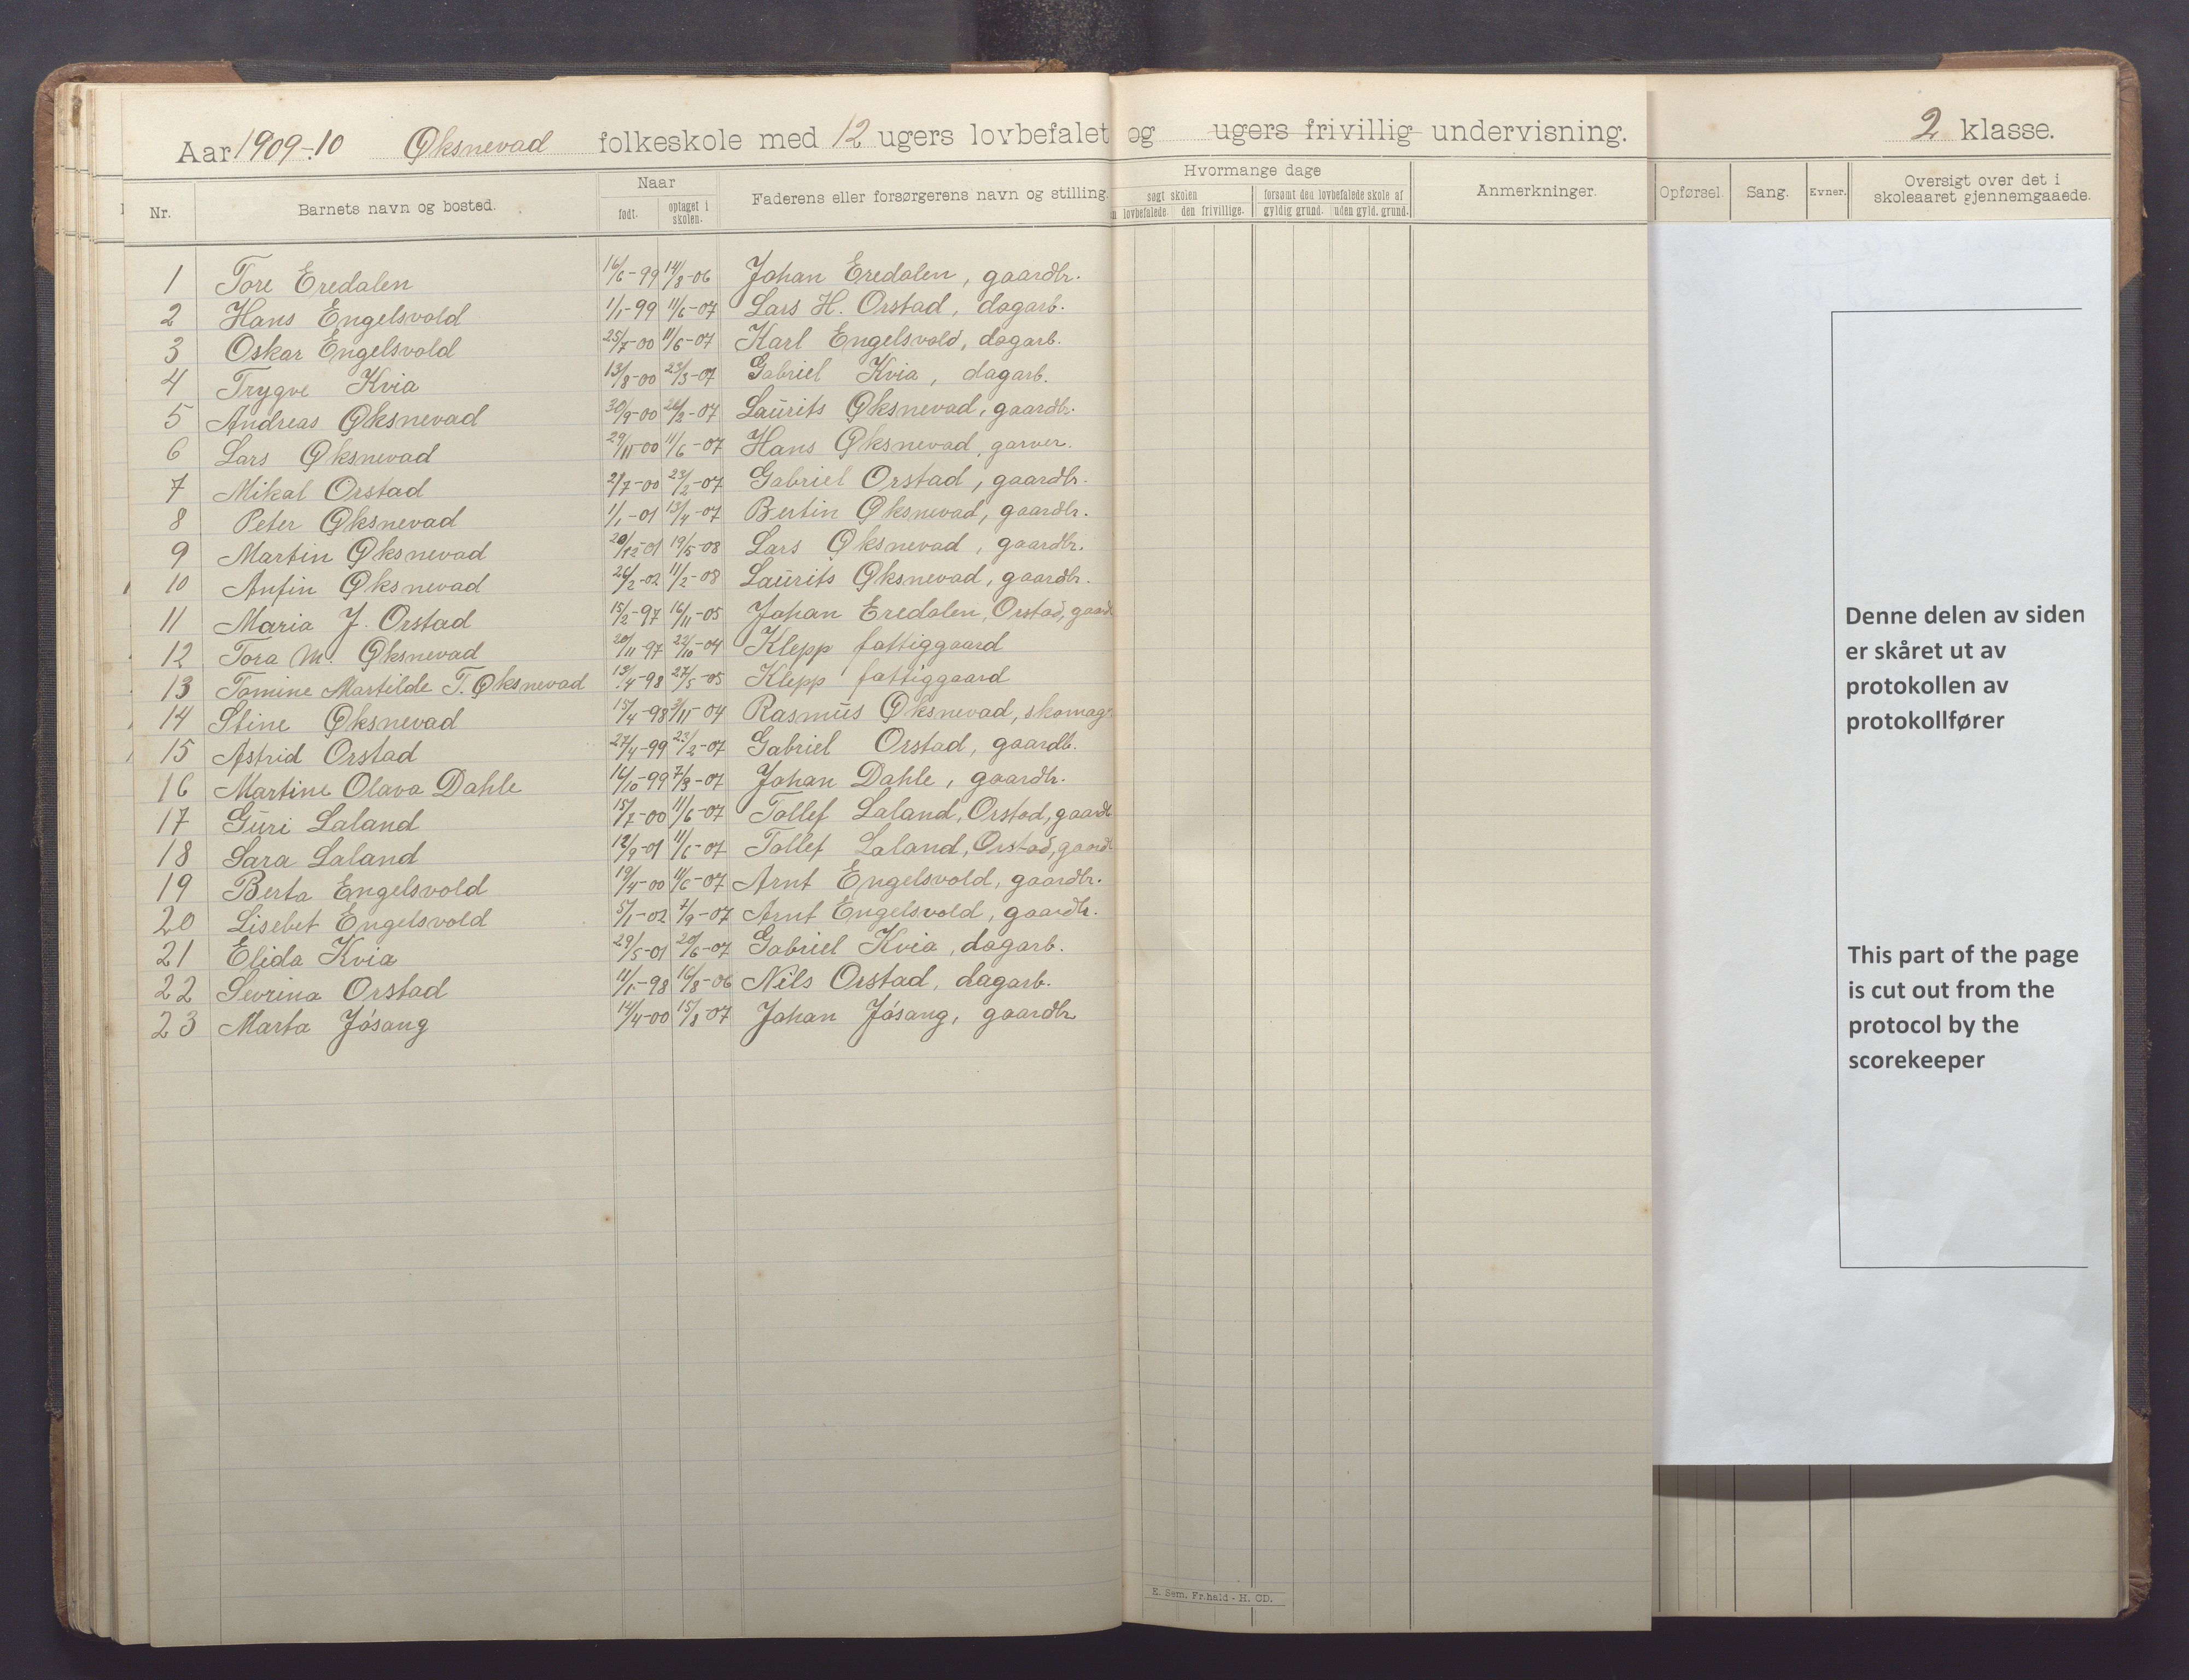 Aar 1909-10 Øksnevad folkeskole med 12 ugers lovbefalet og ugers frivillig undervisning. 2 klasse.
Nr. Barnets navn og bosted. Naar født. optaget i skolen. Faderens eller forsørgerens navn og stilling. Hvormange dage søgt skolen lovbefalede den frivillige. forsømt den lovbefalede skole af gyldig grund. uden gyld. grund. Anmerkninger. Opførsel. Sang. Evner. Oversigt over det i skoleaaret gjennemgaaede.
1 Tore Eredalen 16/6-99 14/8-06 Johan Eredalen, gaardbr.
2 Hans Engelsvold 1/1-99 11/6-07 Lars H. Orstad, dagarb.
3 Oskar Engelsvold 25/7-00 11/6-07 Karl Engelsvold, dagarb.
4 Trygve Kvia 13/8-00 23/3-07 Gabriel Kvia, dagarb.
5 Andreas Øksnevad 30/9-00 26/2-07 Laurits Øksnevad, gaardbr.
6 Lars Øksnevad 29/11-00 11/6-07 Hans Øksnevad, garver.
7 Mikal Orstad 2/7-00 23/2-07 Gabriel Orstad, gaardbr.
8 Peter Øksnevad 1/1-01 13/4-07 Bertin Øksnevad, gaardbr.
9 Martin Øksnevad 20/12-01 19/5-08 Lars Øksnevad, gaardbr.
10 Anfin Øksnevad 26/2-02 11/2-08 Laurits Øksnevad, gaardbr.
11 Maria J. Orstad 15/2-97 16/11-05 Johan Eredalen, Orstad, gaard
12 Tora M. Øksnevad 20/11-97 22/10-04 Klepp fattiggaard
13 Tomine Martilde T. Øksnevad 13/4-98 27/5-05 Klepp fattiggaard
14 Stine Øksnevad 15/4-98 9/11-04 Rasmus Øksnevad, skomag
15 Astrid Orstad 27/4-99 23/2-07 Gabriel Orstad, gaardb.
16 Martine Olava Dahle 16/10-99 7/3-07 Johan Dahle, gaardbr.
17 Guri Laland 15/7-00 11/6-07 Tollef Laland, Orstad, gaardb
18 Sara Laland 12/9-01 11/6-07 Tollef Laland, Orstad, gaard
19 Berta Engelsvold 19/4-00 11/6-07 Arnt Engelsvold, gaardbr.
20 Lisebet Engelsvold 5/1-02 7/9-07 Arnt Engelsvold, gaardbr.
21 Elida Kvia 29/5-01 20/6-07 Gabriel Kvia, dagarb.
22 Sevrina Orstad 11/1-98 16/8-06 Nils Orstad, dagarb.
23 Marta Jósang 14/4-00 15/8-07 Johan Jósang, gaardbr
Denne delen av siden
er skåret ut av
protokollen av
protokollfører
This part of the page
is cut out from the
protocol by the
scorekeeper
E. Sem. Fr.hald - H. CD.